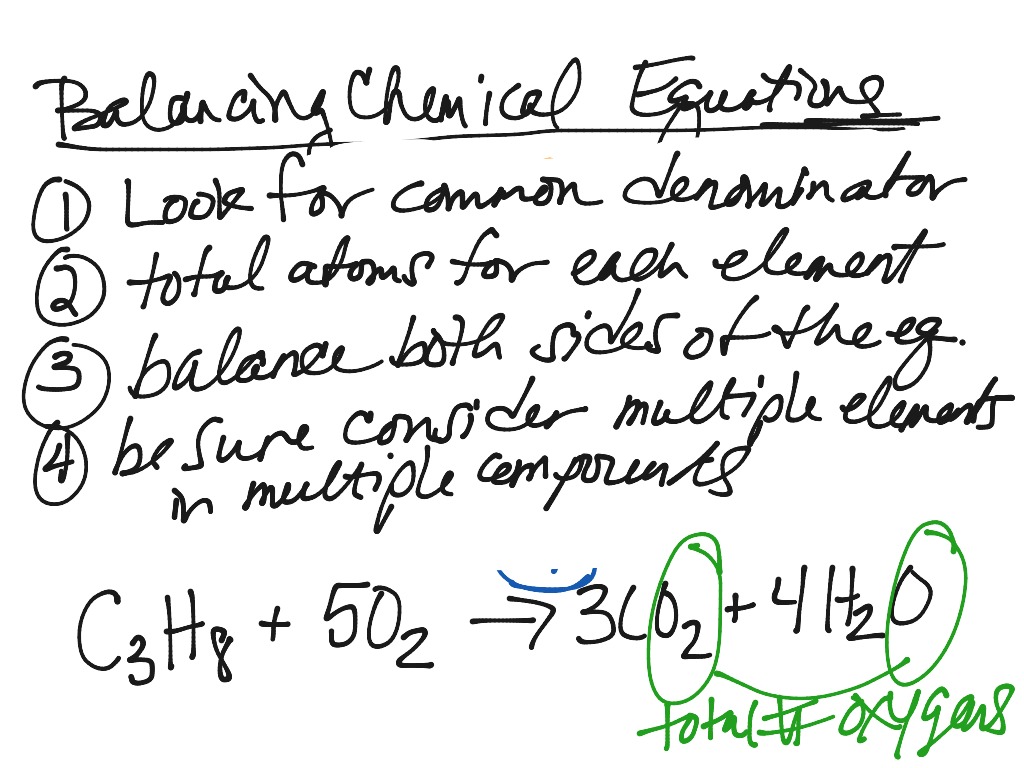 Balancing Chemical Equations
① Look for common denominator
② total atoms for each element
③ balance both sides of the eq.
④ be sure consider multiple elements
in multiple compounds
C₃H₈ + 5O₂ → 3CO₂ + 4H₂O
total # oxygens